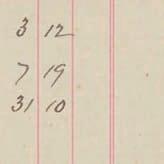 3 12
7 19
31 10